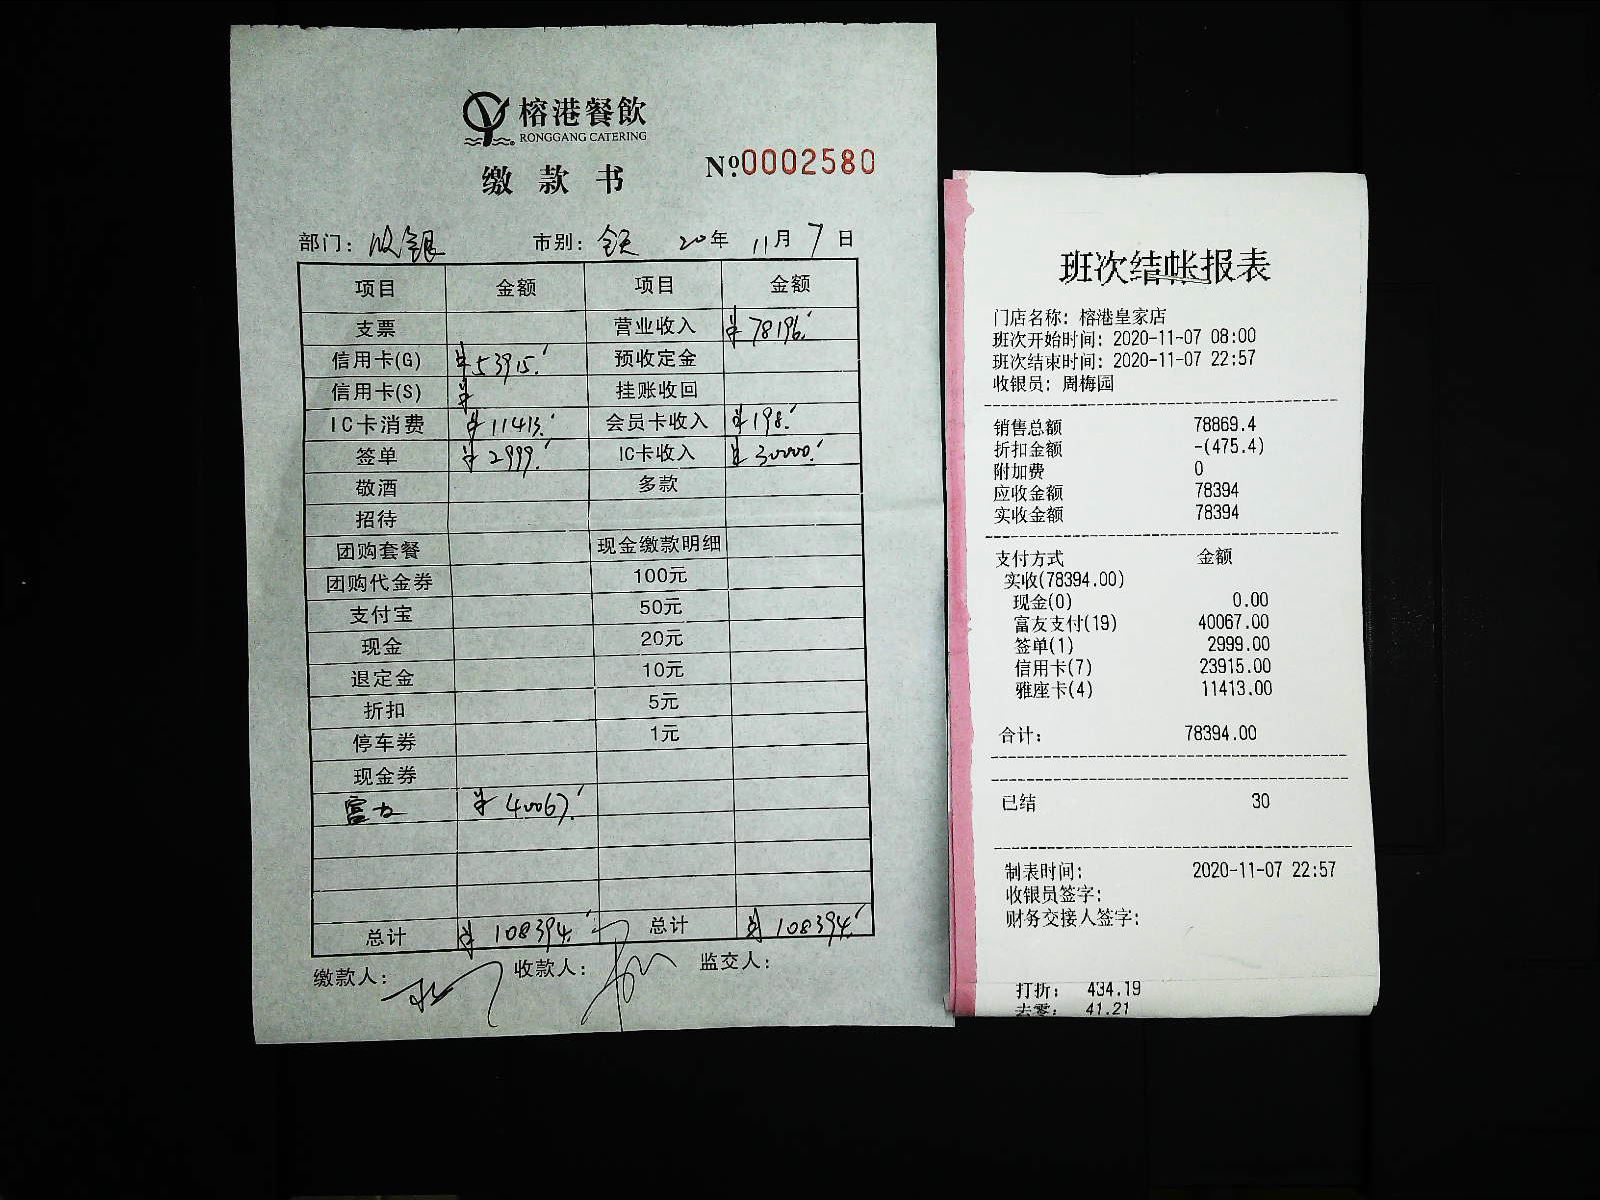 榕港餐飲
RONGGANG CATERING
缴款书
№0002580
部门：收银 市别：全天 20年 11月 7日
项目 金额 项目 金额
支票 营业收入 ¥78196.-
信用卡(G) ¥53915.- 预收定金
信用卡(S) ¥ 挂账收回
IC卡消费 ¥11413.- 会员卡收入 ¥198.-
签单 ¥2999.- IC卡收入 ¥30000.-
敬酒 多款
招待
团购套餐 现金缴款明细
团购代金券 100元
支付宝 50元
现金 20元
退定金 10元
折扣 5元
停车券 1元
现金券
富友 ¥40067.-
总计 ¥108394.- 总计 ¥108394.-
缴款人： 收款人： 监交人：
班次结帐报表
门店名称：榕港皇家店
班次开始时间：2020-11-07 08:00
班次结束时间：2020-11-07 22:57
收银员：周梅园
销售总额 78869.4
折扣金额 -(475.4)
附加费 0
应收金额 78394
实收金额 78394
支付方式 金额
实收(78394.00)
现金(0) 0.00
富友支付(19) 40067.00
签单(1) 2999.00
信用卡(7) 23915.00
雅座卡(4) 11413.00
合计： 78394.00
已结 30
制表时间： 2020-11-07 22:57
收银员签字：
财务交接人签字：
打折： 434.19
去零： 41.21